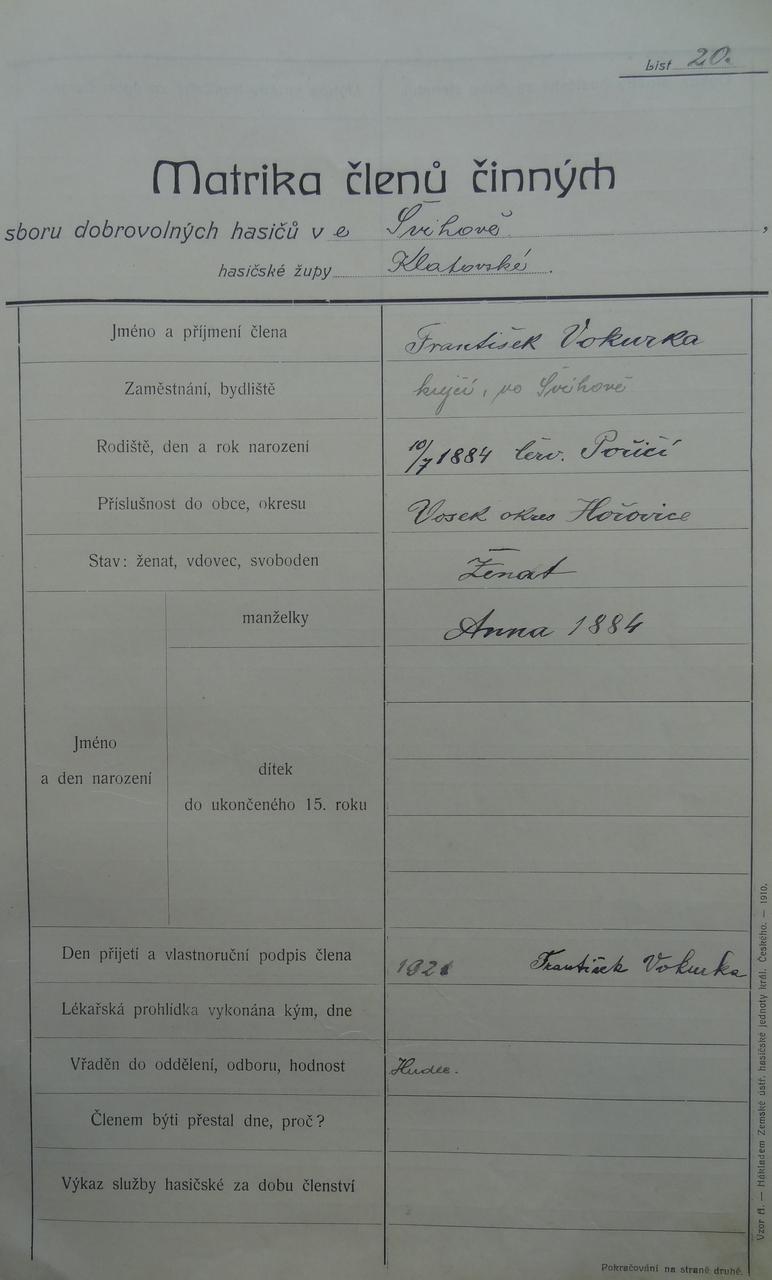 List 20.
Matrika členů činných
sboru dobrovolných hasičů v e Švihově,
hasičské župy Klatovské.
Jméno a příjmení člena František Vokurka
Zaměstnání, bydliště krejčí, ve Švihově
Rodiště, den a rok narození 10/7 1884 Červ. Poříčí
Příslušnost do obce, okresu Vosek okres Hořovice
Stav: ženat, vdovec, svoboden Ženat
manželky Anna 1884
Jméno
a den narození
dítek
do ukončeného 15. roku
Den přijetí a vlastnoruční podpis člena 1921 František Vokurka
Lékařská prohlídka vykonána kým, dne
Vřaděn do oddělení, odboru, hodnost Hudec.
Členem býti přestal dne, proč?
Výkaz služby hasičské za dobu členství
Pokračování na straně druhé.
Vzor A. — Nákladem Zemské ústř. hasičské jednoty král. Českého. — 1910.